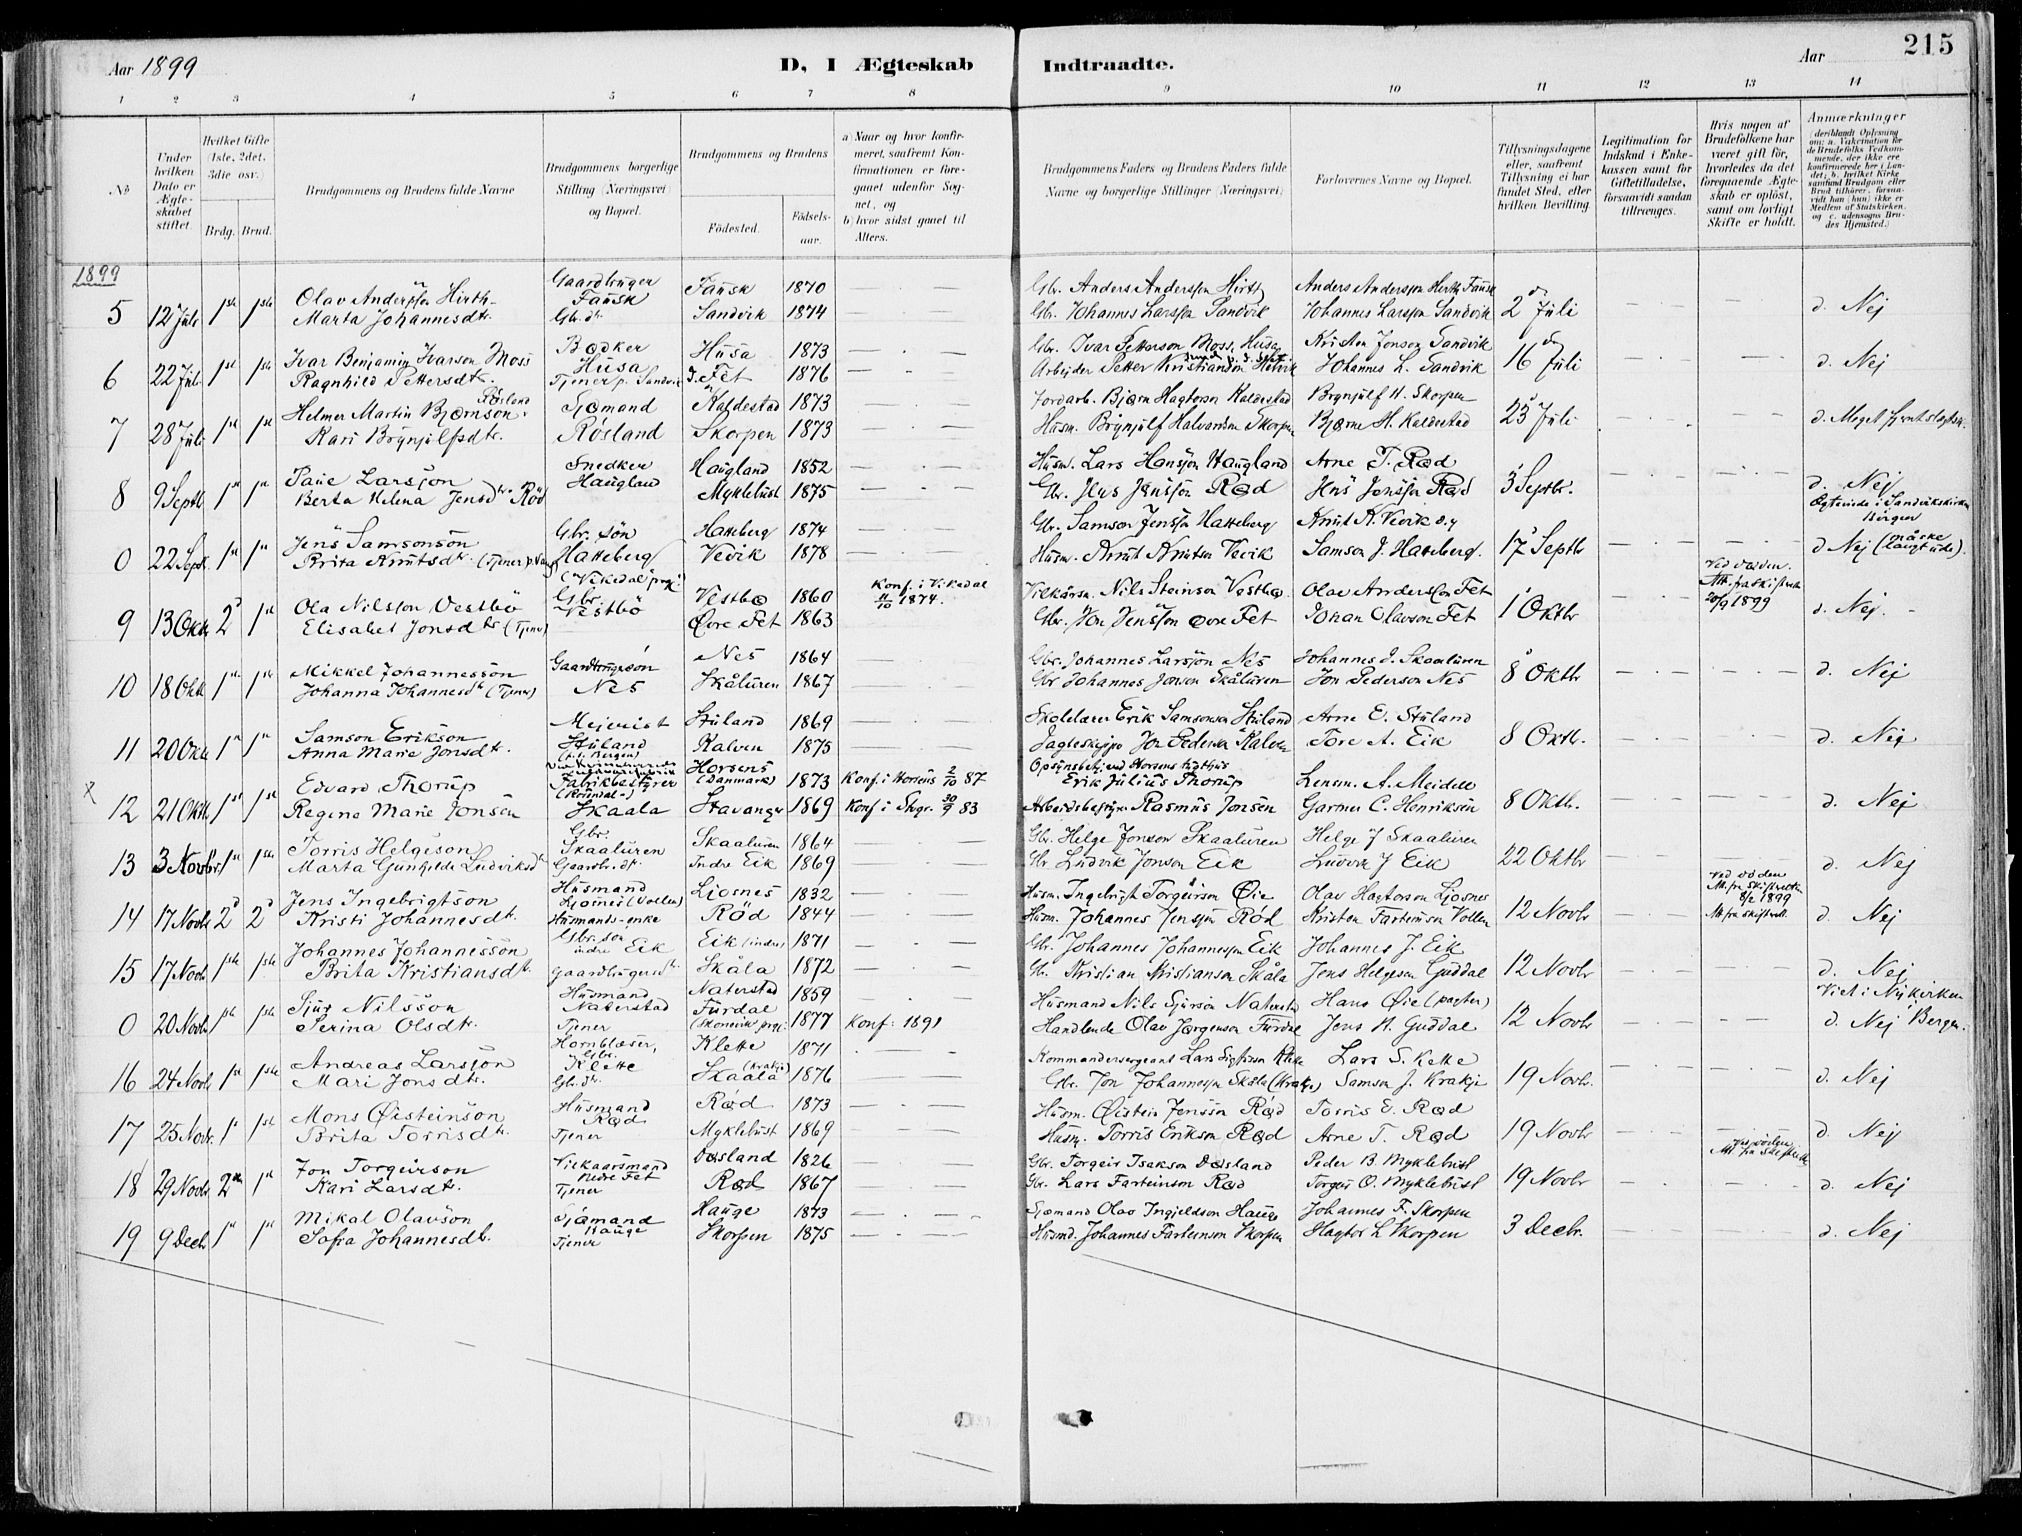 215
Aar 1899
D, I Ægteskab
Indtraadte.
Aar
1 2 3 4 5 6 7 8 9 10 11 12 13 14
No
Under hvilken Dato er Ægteskabet stiftet.
Hvilket Gifte (1ste, 2det, 3die osv.)
Brdg. Brud.
Brudgommens og Brudens fulde Navne
Brudgommens borgerlige Stilling (Næringsvei) og Bopæl.
Brudgommens og Brudens
Födested. Födsels-aar.
a) Naar og hvor konfirmeret, saafremt Konfirmationen er foregaaet udenfor Sognet, og
b) hvor sidst gaaet til Alters.
Brudgommens Faders og Brudens Faders fulde Navne og borgerlige Stillinger (Næringsvei)
Forlovernes Navne og Bopæl.
Tillysningsdagene eller, saafremt Tillysning ei har fundet Sted, efter hvilken Bevilling.
Legitimation for Indskud i Enkekassen samt for Giftetilladelse, forsaavidt saadan tiltrænges.
Hvis nogen af Brudefolkene har været gift för, hvorledes da det foregaaende Ægteskab er oplöst, samt om lovligt Skifte er holdt.
Anmærkninger
(deriblandt Oplysning om: a. Vakcination for de Brudefolks Vedkommende, der ikke ere konfirmerede her i Landet; b. hvilket Kirkesamfund Brudgom eller Brud tilhører, forsaavidt han (hun) ikke er Medlem af Statskirken, og c. udensogns Brudes Hjemsted.)
1899
5 12 Juli 1ste 1ste Olav Andersson Hirth Gaardbruger Fausk Fausk 1870 Gbr. Anders Andersson Hirth Anders Andersson Hirth Fausk 2 Juli d. Nej
Marta Johannesdtr. Gbr. dtr. Sandvik 1874 Gbr. Johannes Larsson Sandvik Johannes Larsson Sandvik
6 22 Juli 1ste 1ste Ivar Benjamin Ivarson Moss Bødker Husa Husa 1873 Gbr. Ivar Petterson Moss, Husa Kristen Jonson Sandvik 16 Juli d. Nej
Ragnhild Pettersdtr. Tjener p. Sandvik Fet 1876 Arbejder Petter Kristianson Johannes L. Sandvik
7 28 Juli 1ste 1ste Helmer Martin Bjørnson Røsland Sjømand Røsland Kaldestad 1873 Jordarb. Bjørn Hagtorson Kaldestad Brynjulf H. Skorpen 23 Juli d. Meget fjernt slegtsk.
Kari Brynjulfsdtr. Skorpen 1873 Husm. Brynjulf Halvardson Skorpen Bjørne H. Kaldestad
8 9 Septbr 1ste 1ste Paul Larsson Snedker Haugland Haugland 1852 Husm. Lars Hansson Haugland Arne T. Rød 3 Septbr. d. Nej
Berta Helena Jensdtr. Rød Myklebust 1875 Gbr. Jens Jonsson Rød Jens Jonsson Rød
0 22 Sept. 1ste 1ste Jens Samsonson Gbr. søn Hatteberg Hatteberg 1874 Gbr. Samson Jensson Hatteberg Knut K. Vevik og 17 Septbr Egteviede i Sandvikskirken Bergen
Brita Knutsdtr. (Tjener p. Vang) Vevik 1878 Husm. Knut Knutson Vevik Samson J. Hatteberg. d Nej (måske langt ude).
9 13 Oktbr 2d 1ste Ola Nilsson Vestbø ("Vikedal prgj.") Gbr. Vestbø Vestbø 1860 Konf. i Vikedal 11/10 1874. Vilkårsm. Nils Steinson Vestbø. Olav Andersson Fet 1 Oktbr Ved døden. Att. fra skifteretten 20/9 1899 d. Nej.
Elisabet Jonsdtr. (Tjener) Øvre Fet 1863 Gbr. Jon Jensson Øvre Fet Johan Olavson Fet
10 18 Oktb 1ste 1ste Mikkel Johannesson Gaardbrugersøn Nes Nes 1864 Gbr. Johannes Larsson Nes Johannes J. Skaaluren 8 Oktbr d. Nej
Johanna Johannesdtr. (Tjener) Skåluren 1867 Gbr Johannes Jonson Skåluren Jon Pederson Nes
11 20 Oktb 1ste 1ste Samson Erikson Mejerist Stuland (p. t. Bergen) Stuland 1869 Skolelærer Erik Samsonson Stuland Arne E. Stuland 8 Oktbr. d. Nej
Anna Marie Jonsdtr. Kalven 1875 Jagteskipper Jon Pederson Kalven Tore A. Eik
12 21 Oktb 1ste 1ste Edvard Thorup Fabrikbestyrer (Rosendal) Skaala Horsens (Danmark) 1873 Konf. i Horsens 2/10 87 Opsynsbetj. ved Horsens tugthus Erik Julius Thorup Lensm. A. Meidell 8 Oktbr. d. Nej
Regine Marie Jonsen Stavanger 1869 Konf. i Stvgr. 30/9 83 Arbeidsbestyrer Rasmus Jonsen Garver C. Henriksen
13 3 Novbr. 1ste 1ste Torris Helgeson Gbr. Skaaluren Skaaluren 1864 Gbr. Helge Jonson Skaaluren Helge J Skaaluren 22 Oktbr d. Nej
Marta Gunhilde Ludviksdtr Gaardbr. dtr. Indre Eik 1869 Gbr. Ludvik Jonson Eik Ludvik J Eik
14 17 Novbr 2d 2d Jens Ingebrigtson Husmand Ljosnes (Vollen) Ljosnes 1832 Husm. Ingebrigt Torgeirson Øie Olav Hagtorson Ljosnes 12 Novbr Ved døden Att. fra Skifteretten 8/2 1899 d. Nej
Kristi Johannesdtr. Husmands-enke Rød 1844 Husm. Johannes Jensson Rød Kristen Farteinson Vollen Att fra skifterett.
15 17 Novbr. 1ste 1ste Johannes Johannesson Gbr. son indre Eik Eik (indre) 1871 Gbr. Johannes Johannesson Eik Johannes J. Eik 12 Novbr d. Nej
Brita Kristiansdtr. Gaardbrugerdtr. Skåla 1872 Gbr. Kristian Kristianson Skåla Jens Helgeson Guddal
0 20 Novbr. 1ste 1ste Sjur Nilsson Husmand Naterstad Naterstad 1859 Husmand Nils Sjurson Naterstad Hans Øie (pagter) 12 Novbr Viet i Nykirken i Bergen.
Serina Olsdtr. Tjener Furdal (Skonevik prgj.) 1877 Konf. 1891 Handlende Olav Jørgenson Furdal Jens H. Guddal d. Nej
16 24 Novbr 1ste 1ste Andreas Larsson Hornblæser, Gbr. Klette Klette 1871 Kommandersergeant Lars Sigfusson Klette Lars S. Klette 19 Novbr. d. Nej
Mari Jonsdtr. Gbr. dtr. Skaala (Krakje) 1876 Gbr. Jon Johannesson Skåla (Krakje) Samson J. Krakje
17 25 Novbr. 1ste 1ste Mons Øisteinson Husmand Rød Rød 1873 Husm. Øistein Jensson Rød Torris E. Rød 19 Novbr d. Nej
Brita Torrisdtr. Tjener Myklebust 1869 Husm. Torris Erikson Rød Arne T. Rød
18 29 Novbr. 2det 1ste Jon Torgeirson Vilkaarsmand Nedre Fet Døsland 1826 Gbr. Torgeir Isakson Døsland Peder B. Myklebust 19 Novbr Ved døden Att. fra skifterett. d. Nej
Kari Larsdtr. Tjener Rød 1867 Gbr. Lars Farteinson Rød Torgeir O. Myklebust
19 9 Decbr 1ste 1ste Mikal Olavson Sjømand Hauge Hauge 1873 Sjømand Olav Ingjeldson Hauge Johannes F. Skorpen 3 Decbr. d. Nej
Sofia Johannesdtr. Tjener Skorpen 1875 Husmd. Johannes Farteinson Skorpen Hagtor L Skorpen